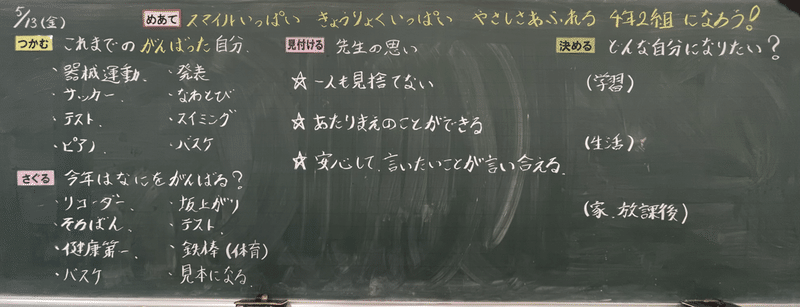 5/13(金) めあて スマイルいっぱい きょうりょくいっぱい やさしさあふれる 4年2組 になろう!
つかむ これまでの がんばった 自分.
・器械運動. ・発表
・サッカー. ・なわとび
・テスト. ・スイミング
・ピアノ. ・バスケ
さぐる 今年はなにをがんばる?
・リコーダー. ・坂上がり
・そろばん. ・テスト.
・健康第一. ・鉄棒(体育)
・バスケ ・見本になる.
見付ける 先生の思い
☆一人も見捨てない
☆あたりまえのことができる
☆安心して、言いたいことが言い合える.
決める どんな自分になりたい?
(学習)
(生活)
(家.放課後)